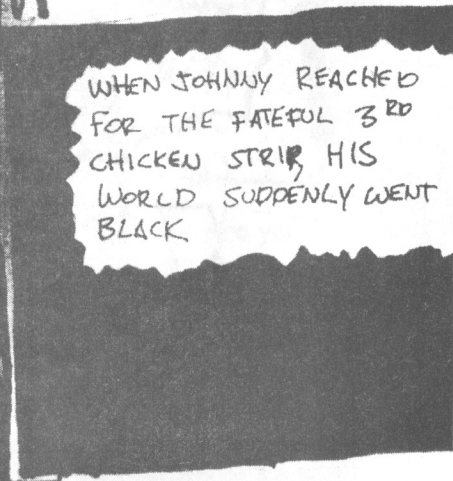 WHEN JOHNNY REACHED
FOR THE FATEFUL 3RD
CHICKEN STRIP, HIS
WORLD SUDDENLY WENT
BLACK